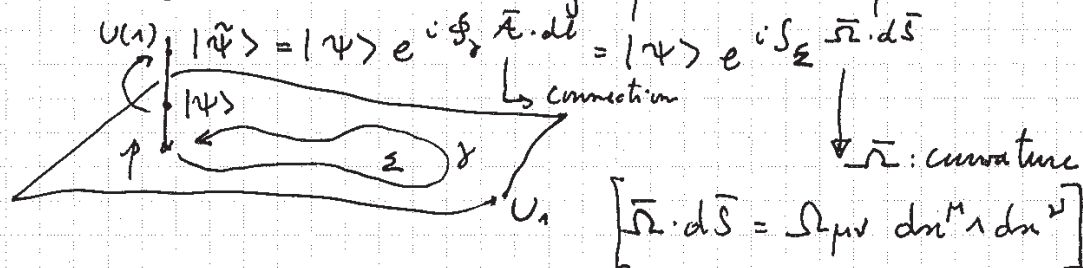 U(1) |ψ̃> = |ψ> e^{i∮_γ Ā·dl̄} = |ψ> e^{i∫_Σ Ω̄·dS̄}
|ψ> ↳ connection
p Σ γ Ω̄: curvature
U₁ [Ω̄·dS̄ = Ω_{μν} dx^μ ∧ dx^ν]